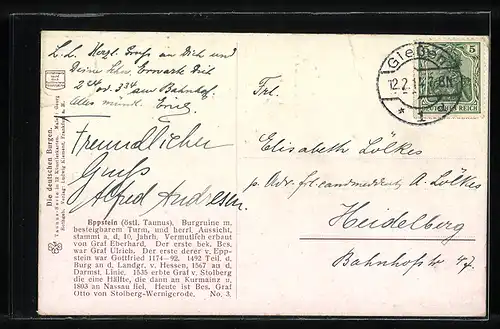 L. L. Herzl. Gruß an Dich und
Deine Erwarte Dich
2 od. 3 34 am Bahnhof.
Alles münd. Erich
Freundlicher
Gruß
Alfred Andresen
Die deutschen Burgen.
Eppstein (östl. Taunus). Burgruine m.
besteigbarem Turm, und herrl. Aussicht,
stammt a. d. 10. Jahrh. Vermutlich erbaut
von Graf Eberhard. Der erste bek. Bes.
war Graf Ulrich. Der erste der v. Epp-
stein war Gottfried 1174–92. 1492 Teil. d.
Burg an d. Landgr. v. Hessen, 1567 an d.
Darmst. Linie. 1535 erbte Graf v. Stolberg
die eine Hälfte, die dann an Kurmainz u.
1803 an Nassau fiel. Heute ist Bes. Graf
Otto von Stolberg-Wernigerode. No. 3.
Gießen
12.2.1
* 1
5
DEUTSCHES REICH
Frl.
Elisabeth Lölkes
p. Adr. A. Lölkes
Heidelberg
Bahnhofstr 47.